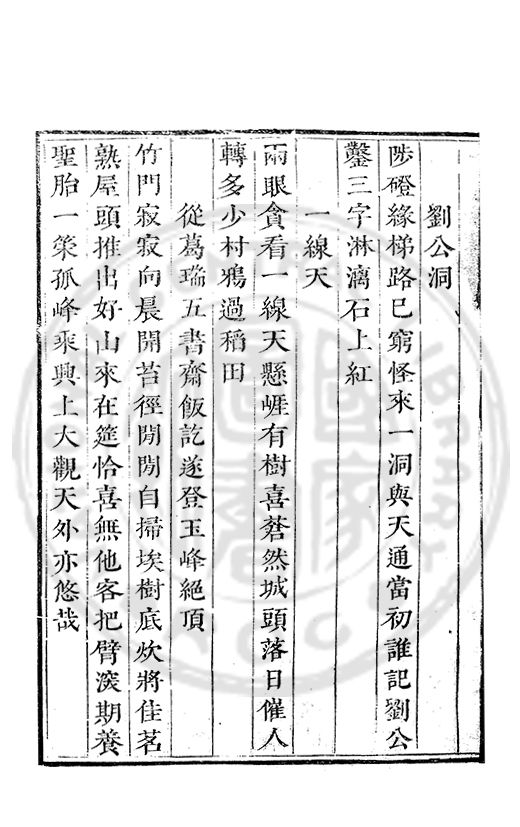 劉公洞
陟磴緣梯路已窮怪來一洞與天通當初誰記劉公
鑿三字淋漓石上紅
一線天
兩眼貪看一線天懸崕有樹喜蒼然城頭落日催人
轉多少村鴉過稻田
從葛瑞五書齋飯訖遂登玉峰絕頂
竹門寂寂向晨開苔徑閒閒自掃埃樹底炊將佳茗
熟屋頭推出好山來在筵恰喜無他客把臂深期養
聖胎一筞孤峰乘興上大觀天外亦悠哉